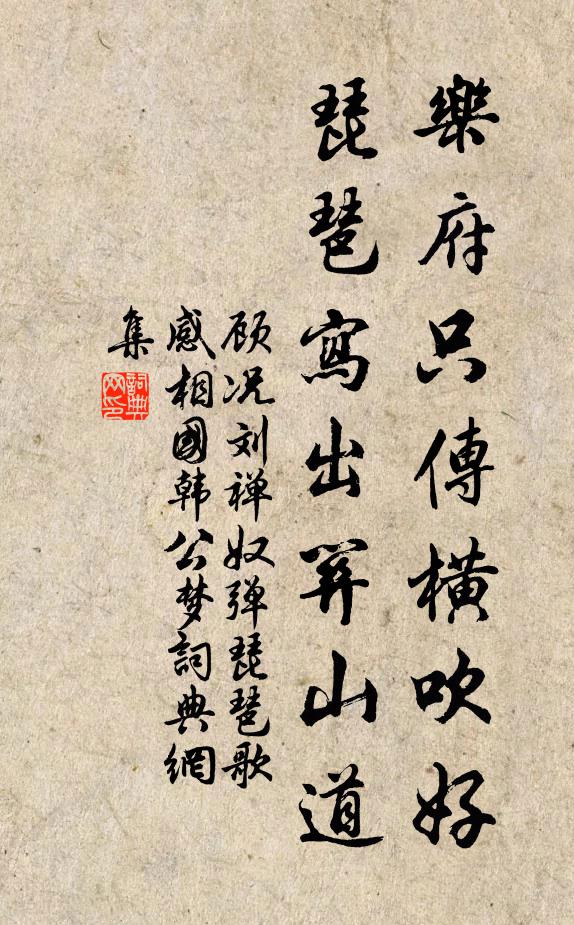 樂府只傳橫吹好
琵琶寫出關山道
顾况刘禅奴弹琵琶歌
感相國韩公梦詞典網
集
詞典
网印